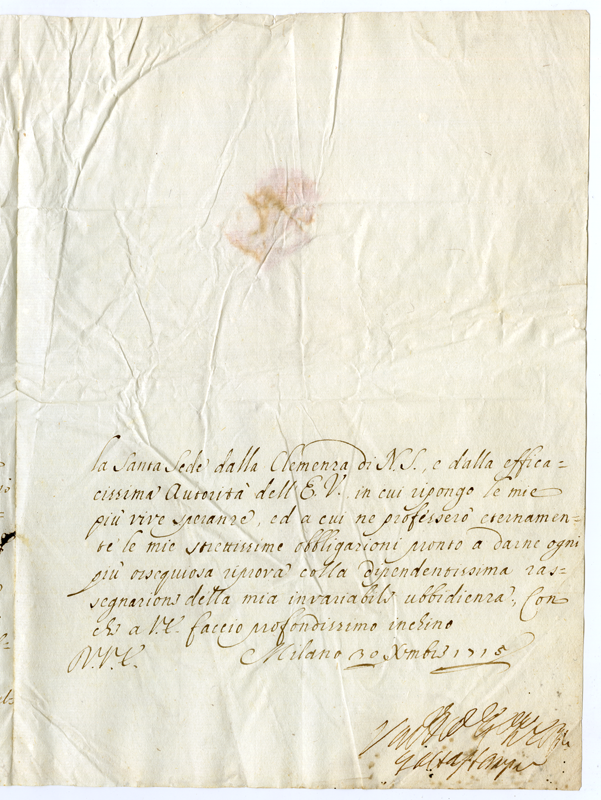 la Santa Sede dalla Clemenza di N.S., e dalla effica=
cissima Autorità dell'E.V., in cui ripongo le mie
più vive speranze, ed a cui ne professerò eternamen=
te le mie strettissime obbligazioni pronto a darne ogni
più ossequiosa riprova colla dipendentissima ras=
segnazione della mia invariabile ubbidienza, Con
che a V.E. faccio profondissimo inchino
Milano 30 Xmbre 1715